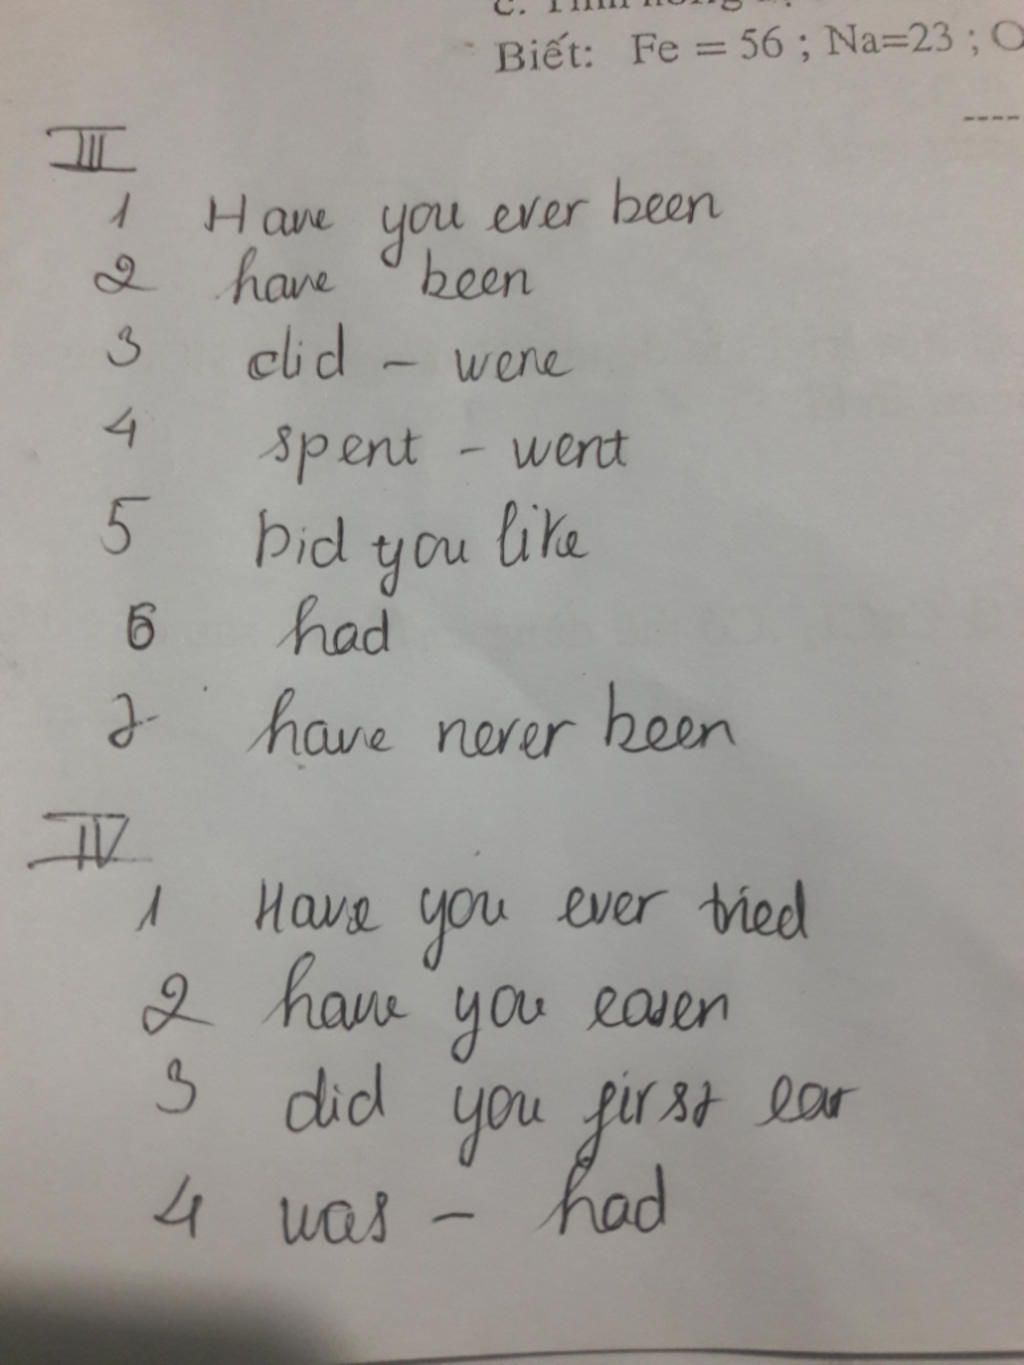 Biết: Fe = 56 ; Na=23 ; O
----
III
1 Have you ever been
2 have been
3 did - were
4 spent - went
5 Did you like
6 had
7 have never been
IV
1 Have you ever tried
2 have you eaten
3 did you first eat
4 was - had